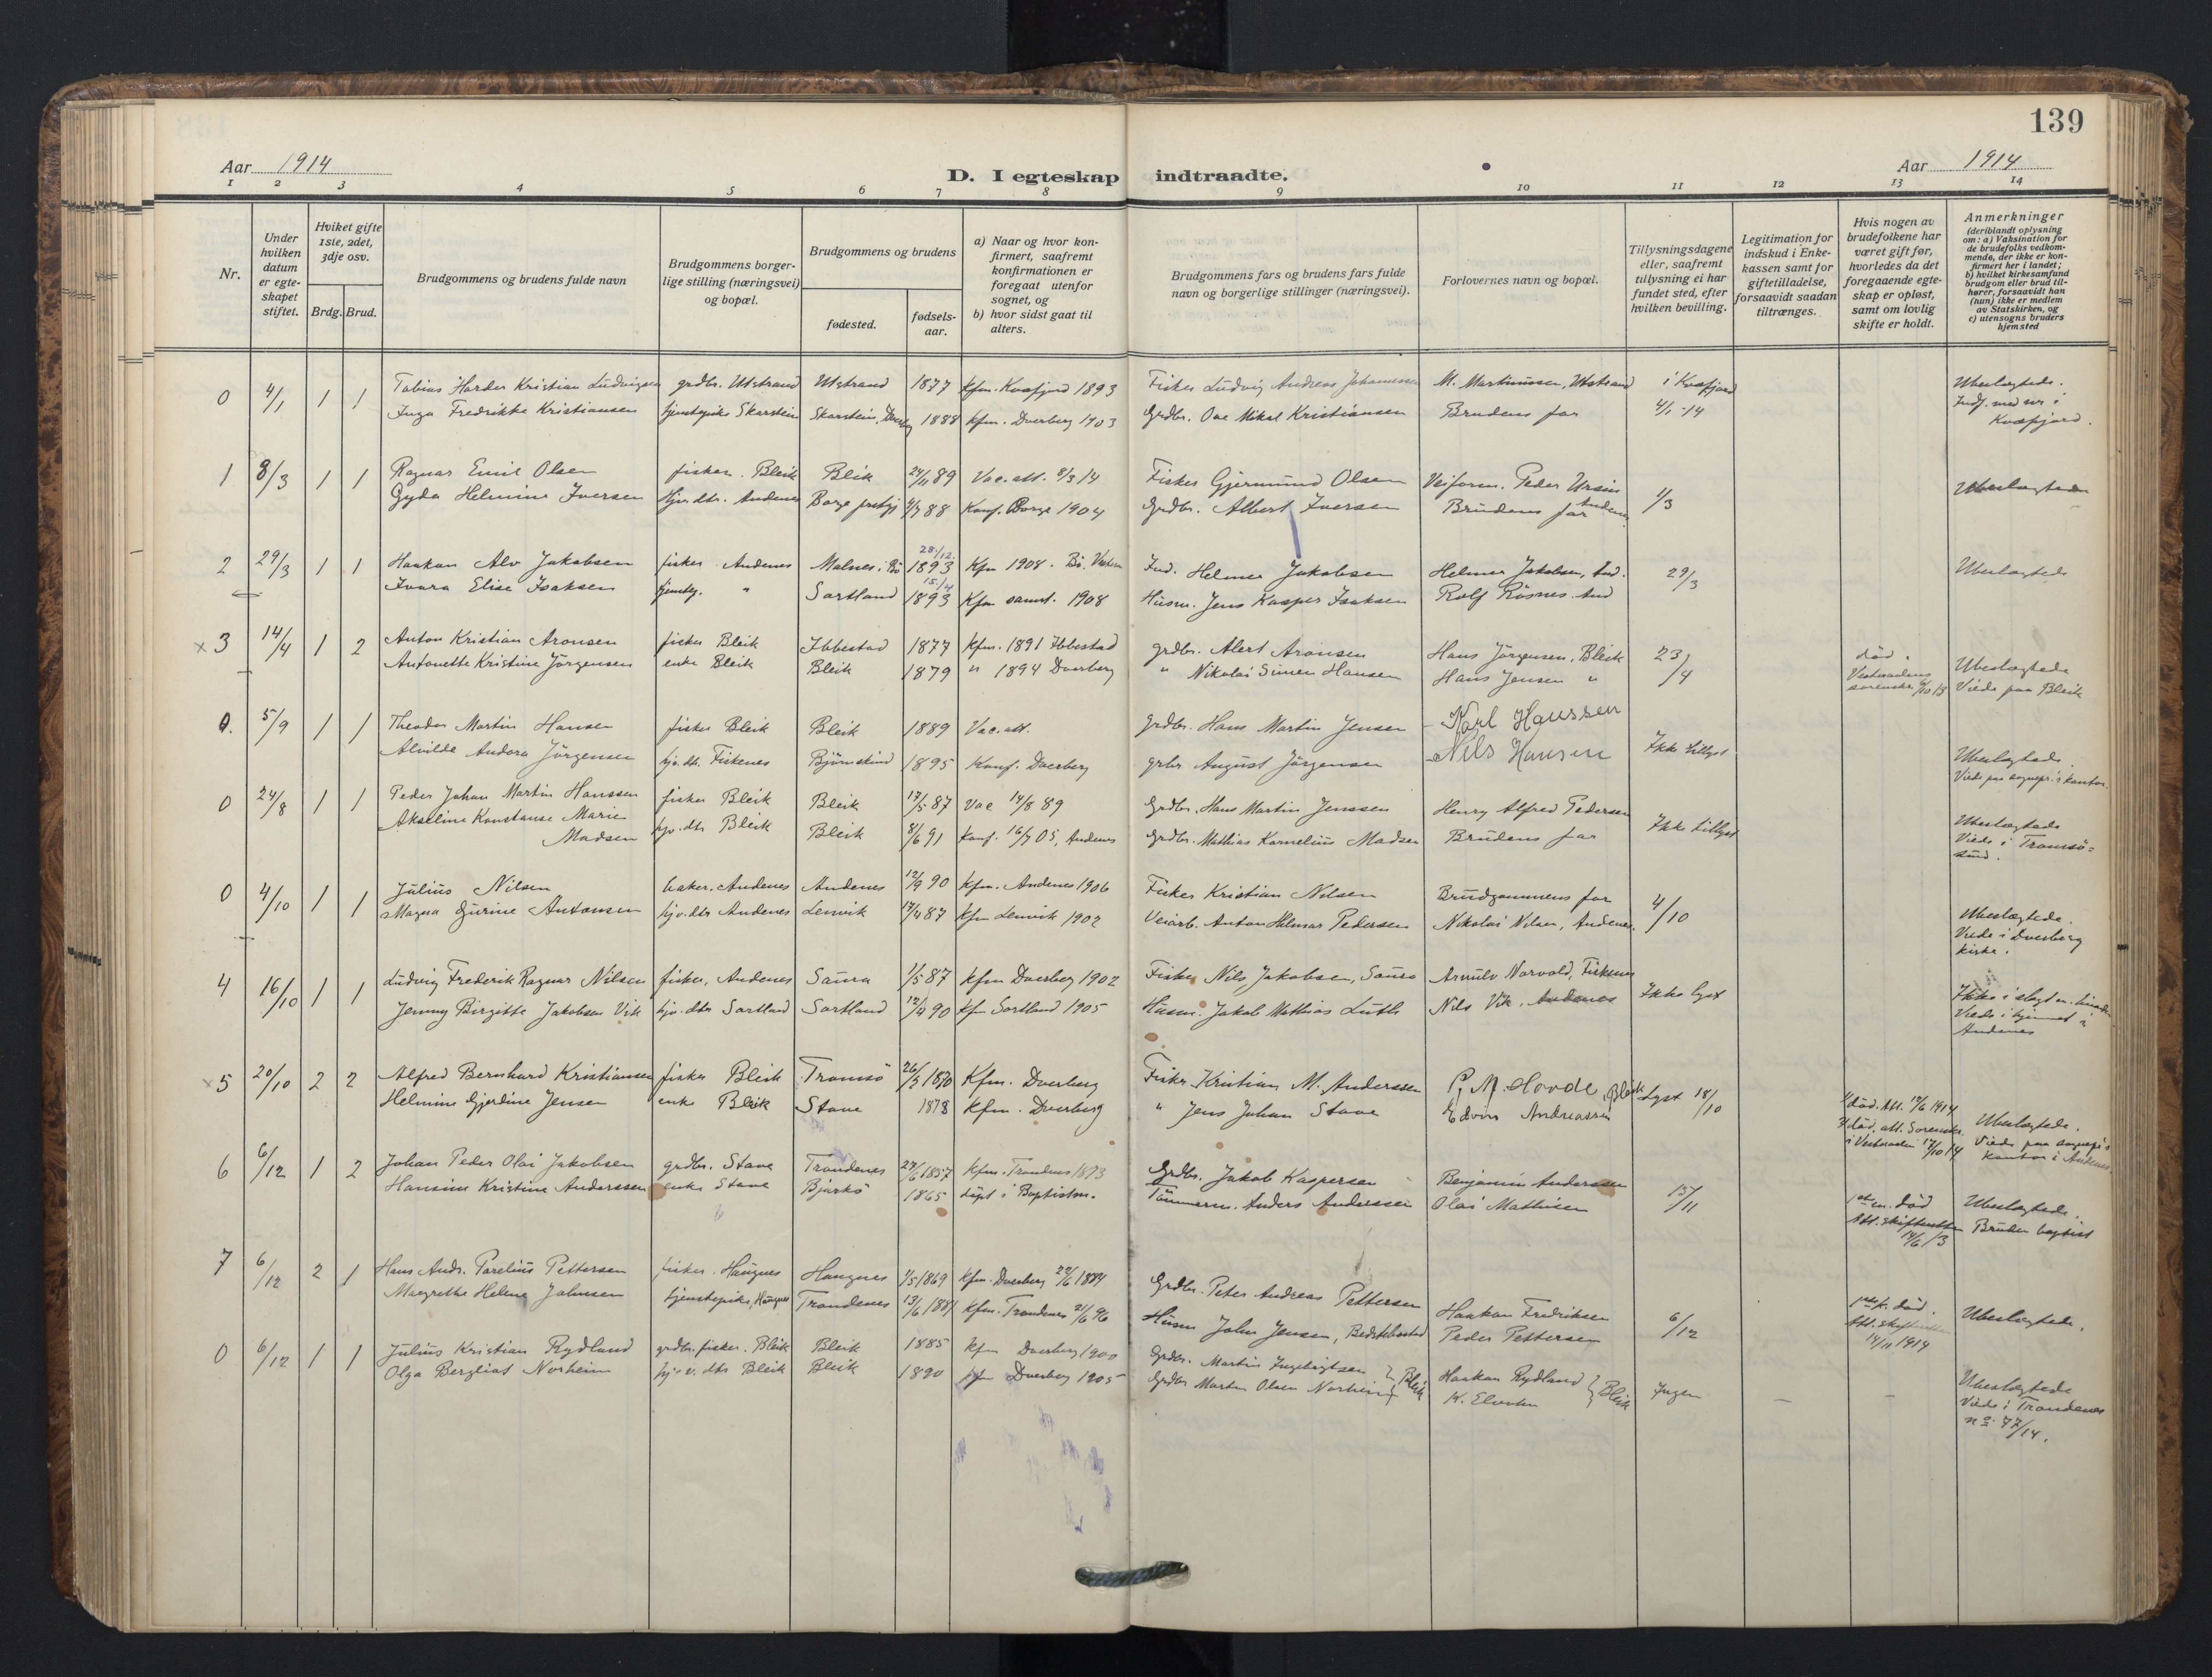 139
Aar 1914
D. I egteskap indtraadte.
Aar 1914
1 2 3 4 5 6 7 8 9 10 11 12 13 14
Nr.
Under hvilken datum er egteskapet stiftet.
Hvilket gifte 1ste, 2det, 3dje osv.
Brdg. Brud.
Brudgommens og brudens fulde navn
Brudgommens borgerlige stilling (næringsvei) og bopæl.
Brudgommens og brudens
fødested.
fødselsaar.
a) Naar og hvor konfirmert, saafremt konfirmationen er foregaat utenfor sognet, og
b) hvor sidst gaat til alters.
Brudgommens fars og brudens fars fulde navn og borgerlige stillinger (næringsvei).
Forlovernes navn og bopæl.
Tillysningsdagene eller, saafremt tillysning ei har fundet sted, efter hvilken bevilling.
Legitimation for indskud i Enkekassen samt for giftetilladelse, forsaavidt saadan tiltrænges.
Hvis nogen av brudefolkene har været gift før, hvorledes da det foregaaende egteskap er opløst, samt om lovlig skifte er holdt.
Anmerkninger (deriblandt oplysning om: a) Vaksination for de brudefolks vedkommende, der ikke er konfirmert her i landet; b) hvilket kirkesamfund brudgom eller brud tilhører, forsaavidt han (hun) ikke er medlem av Statskirken, og c) utensogns bruders hjemsted
0 4/1 1 1 Tobias Harder Kristian Ludvigsen grdbr. Utstrand Utstrand 1877 Kfm. Kvæfjord 1893 Fisker Ludvig Andreas Johannessen M. Martinussen, Utstrand i Kvæfjord Ubeslægtede.
Inga Fredrikke Kristiansen tjenstepike Skarstein Skarstein, Dverberg 1888 Kfm. Dverberg 1903 Grdbr. Ove Mikal Kristiansen Brudens far 4/1-14 Indf. med nr i Kvæfjord.
1 8/3 1 1 Ragnar Emil Olsen fisker. Bleik Bleik 24/11 89 Vac. att. 8/3 14 Fisker Gjermund Olsen Veiform. Peder Ursin Andenes 1/3 Ubeslægtede
Gyda Helmine Iversen Hjv. dtr. Andenes Borge prstgj 4/7 88 Konf. Borge 1904 Grdbr. Albert Iversen Brudens far
2 29/3 1 1 Haakan Alv Jakobsen fisker Andenes Malnes i Bö 28/12. 1893 Kfm 1908. Bö. Vesteraalen Ind. Helmer Jakobsen Helmer Jakobsen, And. 29/3 Ubeslægtede
Ivara Elise Isaksen tjenstg. " Sortland 15/4 1893 Kfm samst. 1908 Husm. Jens Kasper Isaksen Rolf Rösnes And
x 3 14/4 1 2 Anton Kristian Aronsen fisker Bleik Ibbestad 1877 Kfm. 1891 Ibbestad grdbr. Alert Aronsen Hans Jörgensen, Bleik 23/4 död. Ubeslægtede
Antonette Kristine Jörgensen enke Bleik Bleik 1879 " 1894 Dverberg " Nikolai Simen Hansen Hans Jensen " Vesteraalens sorenskr. 6/10 13 Viede paa Bleik
0. 5/9 1 1 Theodor Martin Hansen fisker Bleik Bleik 1889 Vac. att. grdbr. Hans Martin Jensen Karl Haussen
Alvilde Andora Jörgensen hjv. dtr. Fiskenes Björnskind 1895 Konf. Dverberg grbr August Jörgensen Nils Hansen Ikke tillyst Ubeslægtede. Viede paa sognepr.s kontor.
0 24/8 1 1 Peder Johan Martin Hanssen fisker Bleik Bleik 17/5 87 Vac 14/8 89 Grdbr. Hans Martin Jenssen Henry Alfred Pedersen
Akseline Konstanse Marie Madsen hjv. dtr Bleik Bleik 8/6 91 Konf. 16/7 05, Andenes Grdbr. Mathias Kornelius Madsen Brudens far Ikke tillyst Ubeslægtede Viede i Tromsö-sund.
0 4/10 1 1 Julius Nilsen baker, Andenes Andenes 12/9 90 Kfm. Andenes 1906 Fisker Kristian Nilsen Brudgommens far 4/10
Magna Gurine Antonsen hjv. dtr Andenes Lenvik 17/4 87 Kfm Lenvik 1902 Veiarb. Anton Helmar Pedersen Nikolai Nilsen, Andenes. Ubeslægtede. Viede i Dverberg kirke.
4 16/10 1 1 Ludvig Frederik Ragnar Nilsen fisker, Andenes Saura 1/5 87 Kfm Dverberg 1902 Fisker Nils Jakobsen, Saura Arnulv Norvold, Fiskenes
Jenny Birgitte Jakobsen Vik hjv. dtr Sortland Sortland 12/4 90 Kfm Sortland 1905 Husm. Jakob Mathias Luth Nils Vik, Andenes Ikke lyst Ikke i slegt m. hinanden Viede i hjemmet i Andenes
x 5 20/10 2 2 Alfred Bernhard Kristiansen fisker Bleik Tromsö 26/3 1870 Kfm. Dverberg Fisker Kristian M. Anderssen P. M. Hovde, Bleik Lyst 18/10
Helmine Gjerdine Jensen enke Bleik Stave 1878 Kfm. Dverberg " Jens Johan Stave Edvin Andreassen 1/ död. Att. 19/6 1914 2/ död. att. Sorenskr. i Vesteraalen 17/10 14 Ubeslægtede. Viede paa sognepr.s kontor i Andenes
6 6/12 1 2 Johan Peder Olai Jakobsen grdbr. Stave Trondenes 27/6 1857 Kfm. Trondenes 1873 Grdbr. Jakob Kaspersen Benjamin Anderssen
Hansine Kristine Anderssen enke Stave Bjarkö 1865 döpt i Baptistm. Tömmerm. Anders Anderssen Olai Mathisen 15/11 1ste m. död Att. skifteretten 14/6 13 Ubeslægtede. Bruden baptist
7 6/12 2 1 Hans Andr. Parelius Pettersen fisker. Haugnes Haugnes 1/5 1869 Kfm. Dverberg 22/6 1884 Grdbr. Peter Andreas Pettersen Haakan Fredriksen 6/12 1ste k. död. Ubeslægtede.
Margrethe Helene Johnsen tjenstepike, Haugnes Trondenes 13/6 1881 Kfm. Trondenes 21/6 96 Husm John Jensen, Peder Pettersen Att. skifteretten 14/11 1914
0 6/12 1 1 Julius Kristian Rydland grdbr. fisker. Bleik Bleik 1885 Kfm Dverberg 1900 Grdbr. Martin Ingebrigtsen } Bleik Haakan Rydland } Bleik Ingen — — Ubeslægtede
Olga Bergliot Norheim hj. v. dtr Bleik Bleik 1890 Kfm Dverberg 1905 Grdbr Morten Olsen Norheim K. Elvehn Viede i Trondenes no 77/14.